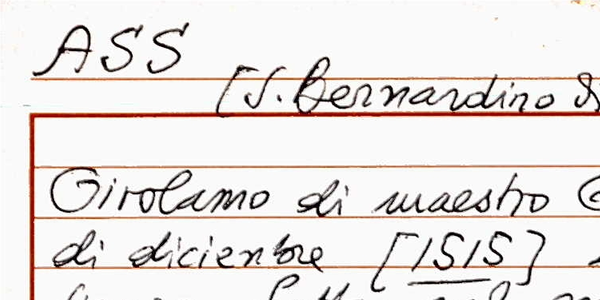 ASS
[S. Bernardino
Girolamo di maestro
di dicienbre [1515]